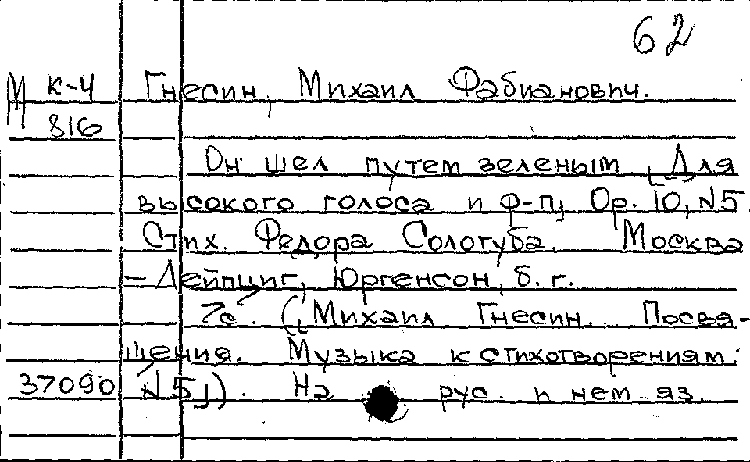 62
М к-4 Гнесин, Михаил Фабианович.
816
Он шел путем зеленым [Для
высокого голоса и ф-п], Op. 10, №5
Стих. Федора Сологуба. Москва
— Лейпциг, Юргенсон, б. г.
7с. ([Михаил Гнесин. Посвя-
щения. Музыка к стихотворениям.
37090 №5]). На рус. и нем. яз.